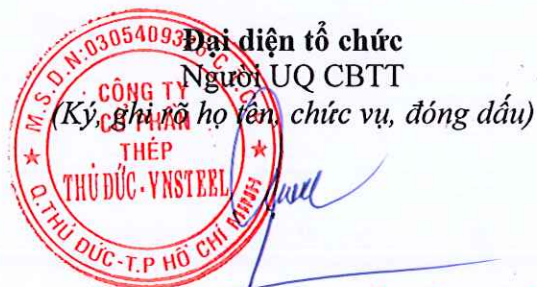 Đại diện tổ chức
Người UQ CBTT
(Ký, ghi rõ họ tên, chức vụ, đóng dấu)
CÔNG TY
CỔ PHẦN
THÉP
THỦ ĐỨC - VNSTEEL
Q.THỦ ĐỨC-T.P HỒ CHÍ MINH